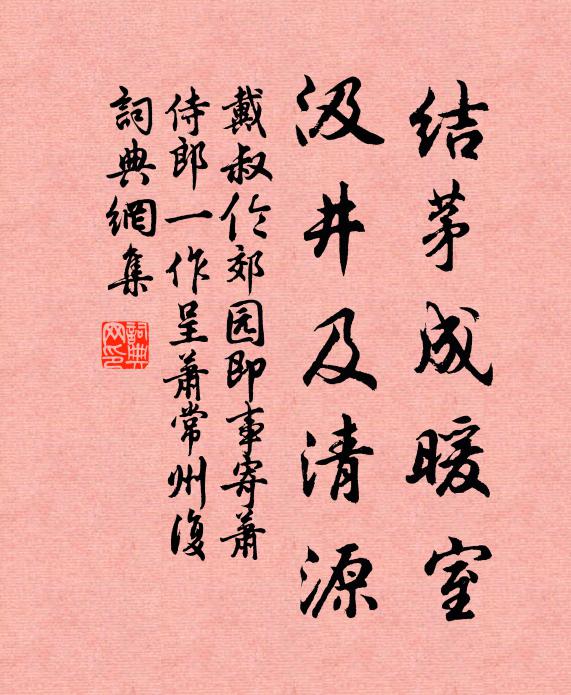 结茅成暖室
汲井及清源
戴叔伦郊园即事寄萧
侍郎一作呈萧常州復
詞典網集
詞典網印